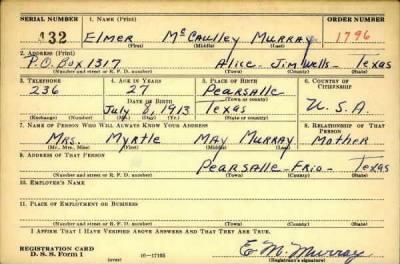 SERIAL NUMBER 1. NAME (Print) ORDER NUMBER
432 ELMER McCAULLEY MURRAY 1796
(First) (Middle) (Last)
2. ADDRESS (Print)
P.O. BOX 1317 Alice - Jim Wells - Texas
(Number and street or R. F. D. number) (Town) (County) (State)
3. TELEPHONE 4. AGE IN YEARS 5. PLACE OF BIRTH 6. COUNTRY OF CITIZENSHIP
236 27 Pearsalle
DATE OF BIRTH (Town or county)
July 8, 1913 Texas U.S.A.
(Exchange) (Number) (Mo.) (Day) (Yr.) (State or country)
7. NAME OF PERSON WHO WILL ALWAYS KNOW YOUR ADDRESS 8. RELATIONSHIP OF THAT PERSON
Mrs. Myrtle May Murray Mother
(Mr., Mrs., Miss) (First) (Middle) (Last)
9. ADDRESS OF THAT PERSON
Pearsalle - Frio - Texas
(Number and street or R. F. D. number) (Town) (County) (State)
10. EMPLOYER'S NAME
11. PLACE OF EMPLOYMENT OR BUSINESS
(Number and street or R. F. D. number) (Town) (County) (State)
I AFFIRM THAT I HAVE VERIFIED ABOVE ANSWERS AND THAT THEY ARE TRUE.
REGISTRATION CARD
D. S. S. Form 1 (over) E. M. Murray
(Registrant's signature)